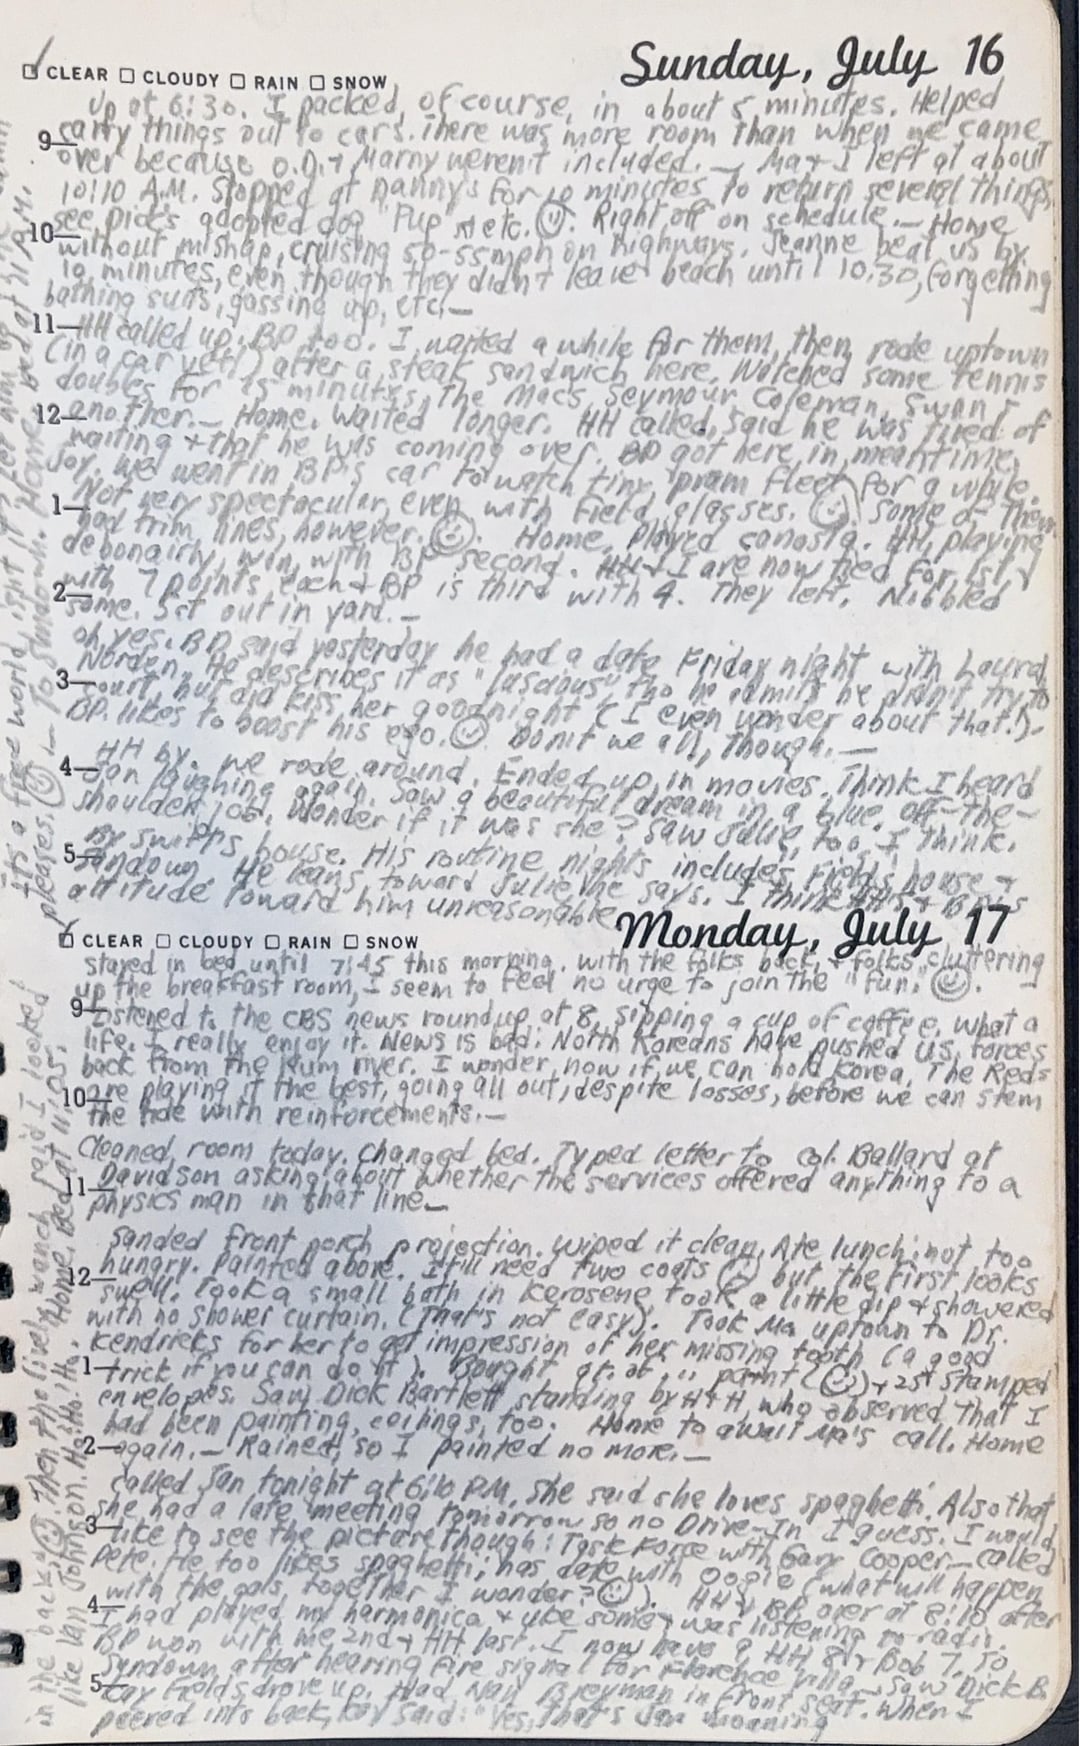 Sunday, July 16
CLEAR CLOUDY RAIN SNOW
Up at 6:30. I packed, of course, in about 5 minutes. Helped
carry things out to cars. There was more room than when we came
over because O.D. + Marny weren't included. — Ma + I left at about
10:10 A.M. Stopped at Danny's for 10 minutes to return several things,
see Dick's adopted dog "Pup" etc. Right off on schedule. — Home
without mishap, cruising 50-55mph on highways. Jeanne beat us by
10 minutes, even though they didn't leave beach until 10:30, forgetting
bathing suits, gassing up, etc. —
HH called up. BP too. I waited a while for them, then rode uptown
(in a car yet!) after a steak sandwich here. Watched some tennis
doubles for 15 minutes, The Macs, Seymour Coleman, Swan +
another. — Home. Waited longer. HH called, said he was tired of
waiting + that he was coming over. BP got here in meantime.
Joy. We went in BP's car to watch tiny pram fleet for a while.
Not very spectacular, even with field glasses. Some of them
had trim lines, however. Home. Played canasta. HH, playing
debonairly, win, with BP second. HH + I are now tied for 1st
with 7 points each + BP is third with 4. They left. Nibbled
some. Sat out in yard. —
Oh yes. BP said yesterday he had a date Friday night with Laural
Norden. He describes it as "luscious", tho he admits he didn't try to
court, but did kiss her goodnight (I even wonder about that!).
BP likes to boost his ego. Don't we all, though. —
HH by. We rode around. Ended up in movies. Think I heard
Jan laughing again. Saw a beautiful dream in a blue off-the-
shoulder job. Wonder if it was she? Saw Julie, too, I think.
By Swift's house. His routine nights includes Field's house +
Sundown. He leans toward Julie, he says. I think HH's + BP's
attitude toward him unreasonable
It's a free world, isn't it?
pleases. — To Sundown. Home. Bed at 11 P.M.
Monday, July 17
CLEAR CLOUDY RAIN SNOW
Stayed in bed until 7:45 this morning. With the folks back, + folks cluttering
up the breakfast room, I seem to feel no urge to join the "fun."
Listened to the CBS news roundup at 8, sipping a cup of coffee. What a
life. I really enjoy it. News is bad: North Koreans have pushed U.S. forces
back from the Kum river. I wonder now if we can hold Korea. The Reds
are playing it the best, going all out, despite losses, before we can stem
the tide with reinforcements. —
Cleaned room today. Changed bed. Typed letter to Col. Ballard at
Davidson asking about whether the services offered anything to a
physics man in that line. —
Sanded front porch projection. Wiped it clean. Ate lunch: not too
hungry. Painted above. It'll need two coats but the first looks
swell. Took a small bath in kerosene, took a little dip + showered
with no shower curtain. (That's not easy). Took Ma uptown to Dr.
Kendricks for her to get impression of her missing tooth (a good
trick if you can do it). Bought qt. of paint + 25 stamped
envelopes. Saw Dick Bartlett standing by H+H, who observed that I
had been painting ceilings, too. Home to await Ma's call. Home
again. — Rained, so I painted no more. —
Called Jan tonight at 6:10 P.M. She said she loves spaghetti. Also that
she had a late meeting tomorrow so no Drive-In I guess. I would
like to see the picture though: Task Force with Gary Cooper — Called
Pete. He too likes spaghetti; has date with Oogie (what will happen
with the gals together I wonder?). HH + BP over at 8:10 after
I had played my harmonica + uke some + was listening to radio.
BP won with me 2nd + HH last. I now have 9, HH 8 + Bob 7. To
Sundown after hearing fire signal for Florence Villa. Saw Dick B.
Kay Fields drove up. Had Breyman in front seat. When I
peered into back, Kay said: "Yes, that's Jan moaning
in the back." Then the lively wench said I looked
like Van Johnson. Ha. Ho. Ho. Home. Bed at 11:05.
9
10
11
12
1
2
3
4
5
9
10
11
12
1
2
3
4
5